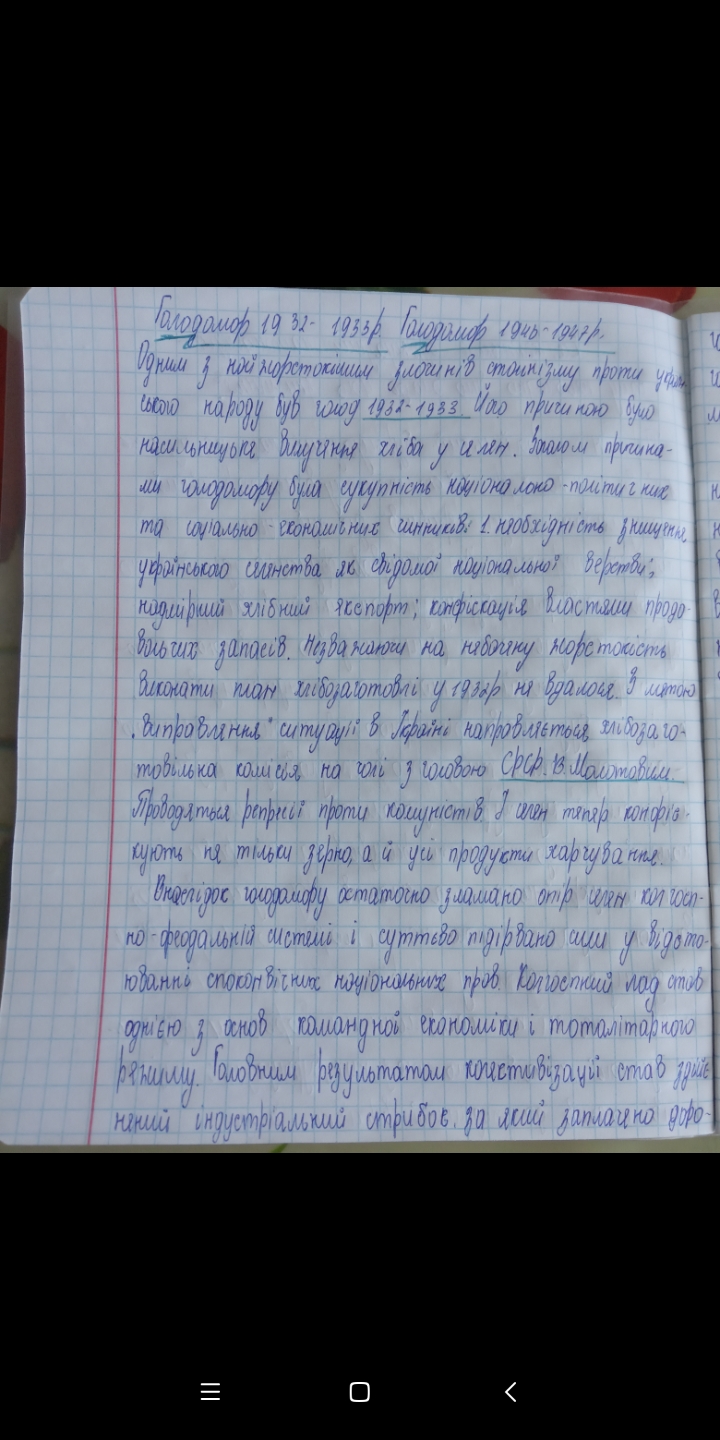 Голодомор 1932-1933р. Голодомор 1946-1947р.
Одним з найжорстокішим злочинів сталінізму проти україн-
ського народу був голод 1932-1933. Його причиною було
насильницьке вилучення хліба у селян. Загалом причина-
ми голодомору була сукупність національно-політичних
та соціально-економічних чинників: 1. необхідність знищення
українського селянства як свідомої національної верстви;
надмірний хлібний експорт; конфіскація властями продо-
вольчих запасів. Незважаючи на небачену жорстокість
виконати план хлібозаготовлі у 1932р не вдалося. З метою
"виправлення" ситуації в Україні направляється хлібозаго-
товільна комісія на чолі з головою СРСР. В. Молотовим.
Проводяться репресії проти комуністів. У селян тепер конфіс-
кують не тільки зерно, а й усі продукти харчування.
Внаслідок голодомору остаточно зламано опір селян колгосп-
но-феодальній системі і суттєво підірвано сили у відсто-
юванні споконвічних національних прав. Колгоспний лад став
однією з основ командної економіки і тоталітарного
режиму. Головним результатом колективізації став здійс
нений індустріальний стрибок, за який заплачено доро-